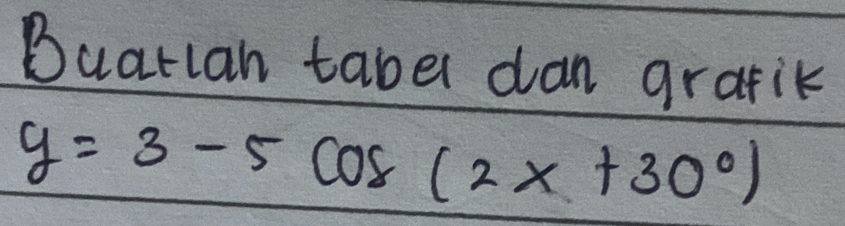 Buatlah tabel dan grafik
y = 3 - 5 cos (2x + 30°)